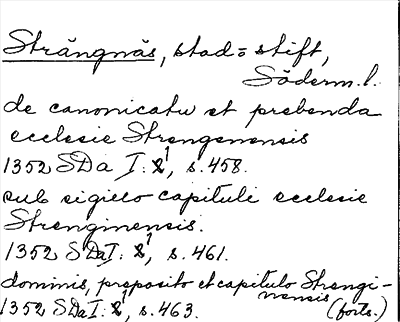 Strängnäs, stad = stift,
Söderm.l.
de canonicatu et prebenda
ecclesie Strengenensis
1352 SDa I:1, s. 458.
sub sigillo capituli ecclesie
Strenginensis.
1352 SDa I:1, s. 461.
dominis, preposito et capitulo Strengi-
nensis
1352 SDa I:1, s. 463. (forts.)